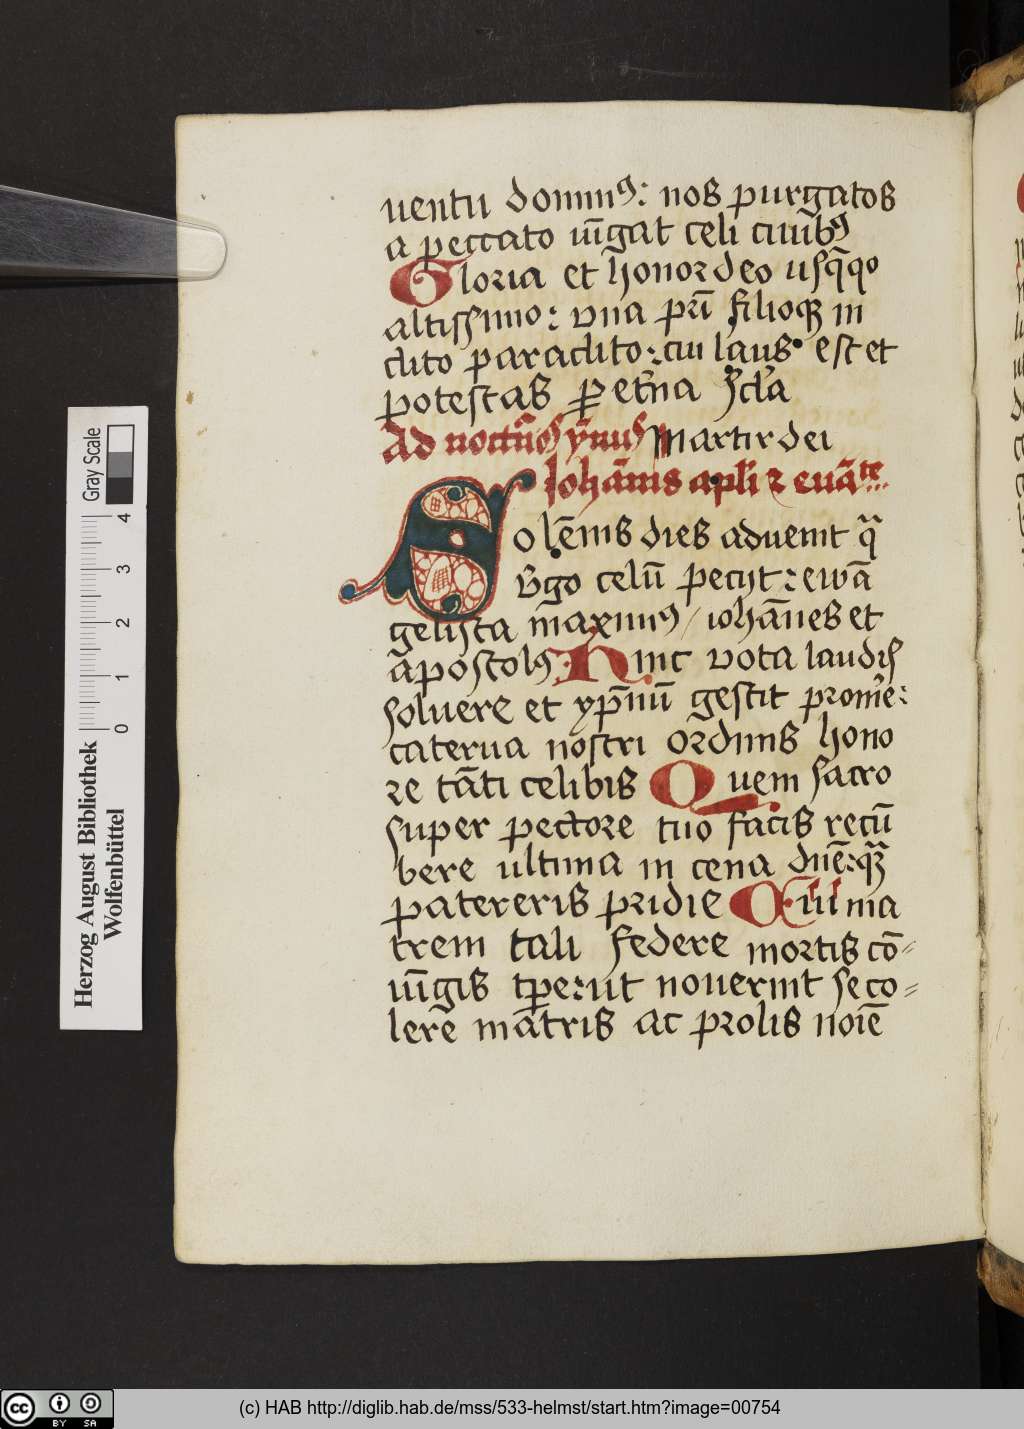 uentu dominꝰ: nos purgatos
a peccato iu̅gat celi ciuib̅ꝰ
Gloria et honor deo usq̅qo
altissimo: vna pr̅i filioqꝫ in
clito paraclito: cui laus est et
potestas ꝑ et̅na scl̅a
Ad noctu̅os ym̅us Martir dei
Ioha̅nis apli ⁊ eua̅te
Sole̅nis dies aduenit q̅
v̅go celu̅ pecijt: ewa̅
gelista maximꝰ / ioha̅nes et
apostolꝰ: Hinc vota laudis
soluere et yp̅nu̅ gestit prom̅e:
caterua nostri ordinis hono
re ta̅ti celibis Quem sacro
super pectore tuo facis recu̅
bere ultima in cena dn̅e: qꝫ
patereris pridie Cui ma
trem tali federe mortis co̅
iu̅gis tꝑe: ut nouerint se co
lere matris ac prolis noi̅e
Gray Scale
0 1 2 3 4
Herzog August Bibliothek
Wolfenbüttel
cc BY SA
(c) HAB http://diglib.hab.de/mss/533-helmst/start.htm?image=00754